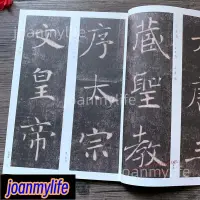 藏聖教
序太宗
文皇帝
joanmylife
joanmylife